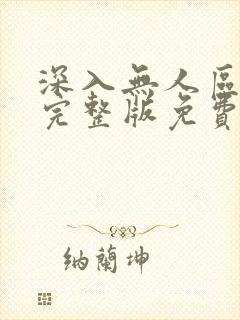 深入無人區
完整版免費
納蘭坤